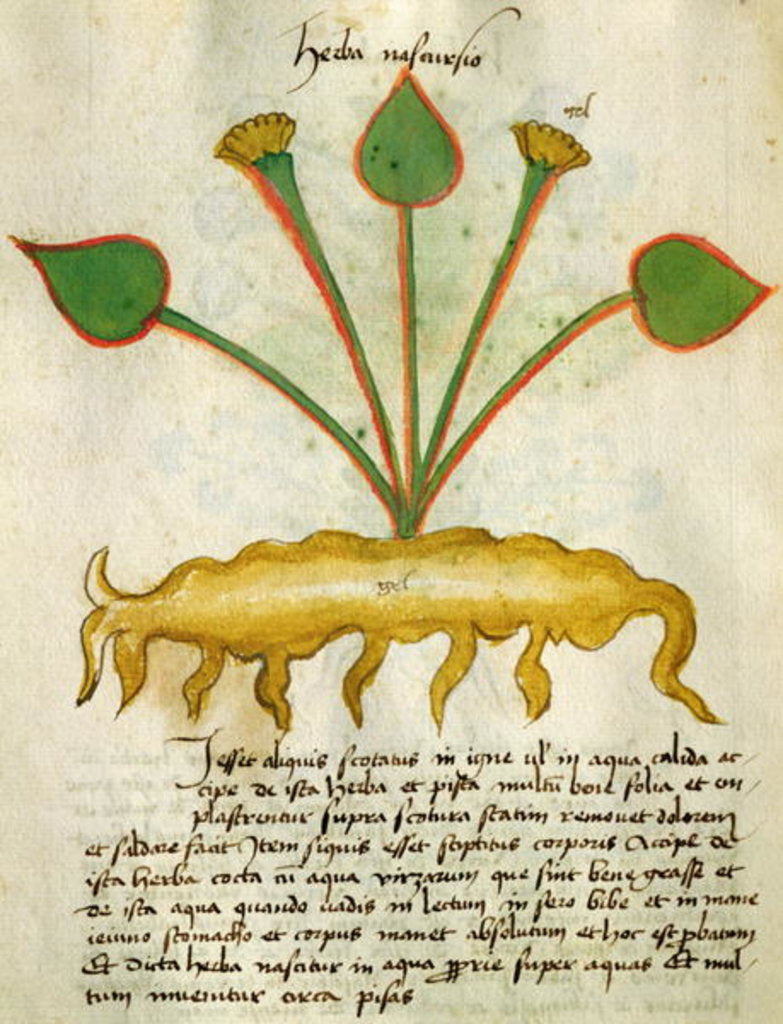 herba nascursio
gel
gel
Iesset aliquis scotatus in igne ul' in aqua calida ac-
cipe de ista herba et pista multū bene folia et em
plastrentur supra scotura statim remouet dolorem
et saldare facit Item siquis esset stiptitus corporis Accipe de
ista herba cocta cū aqua uirzarum que sint bene grasse et
de ista aqua quando uadis in lectum in sero bibe et in mane
ieiuno stomacho et corpus manet absolutum et hoc est ꝓbatum
Et dicta herba nascitur in aqua ꝓprie super aquas Et mul-
tum inuenitur circa pisas